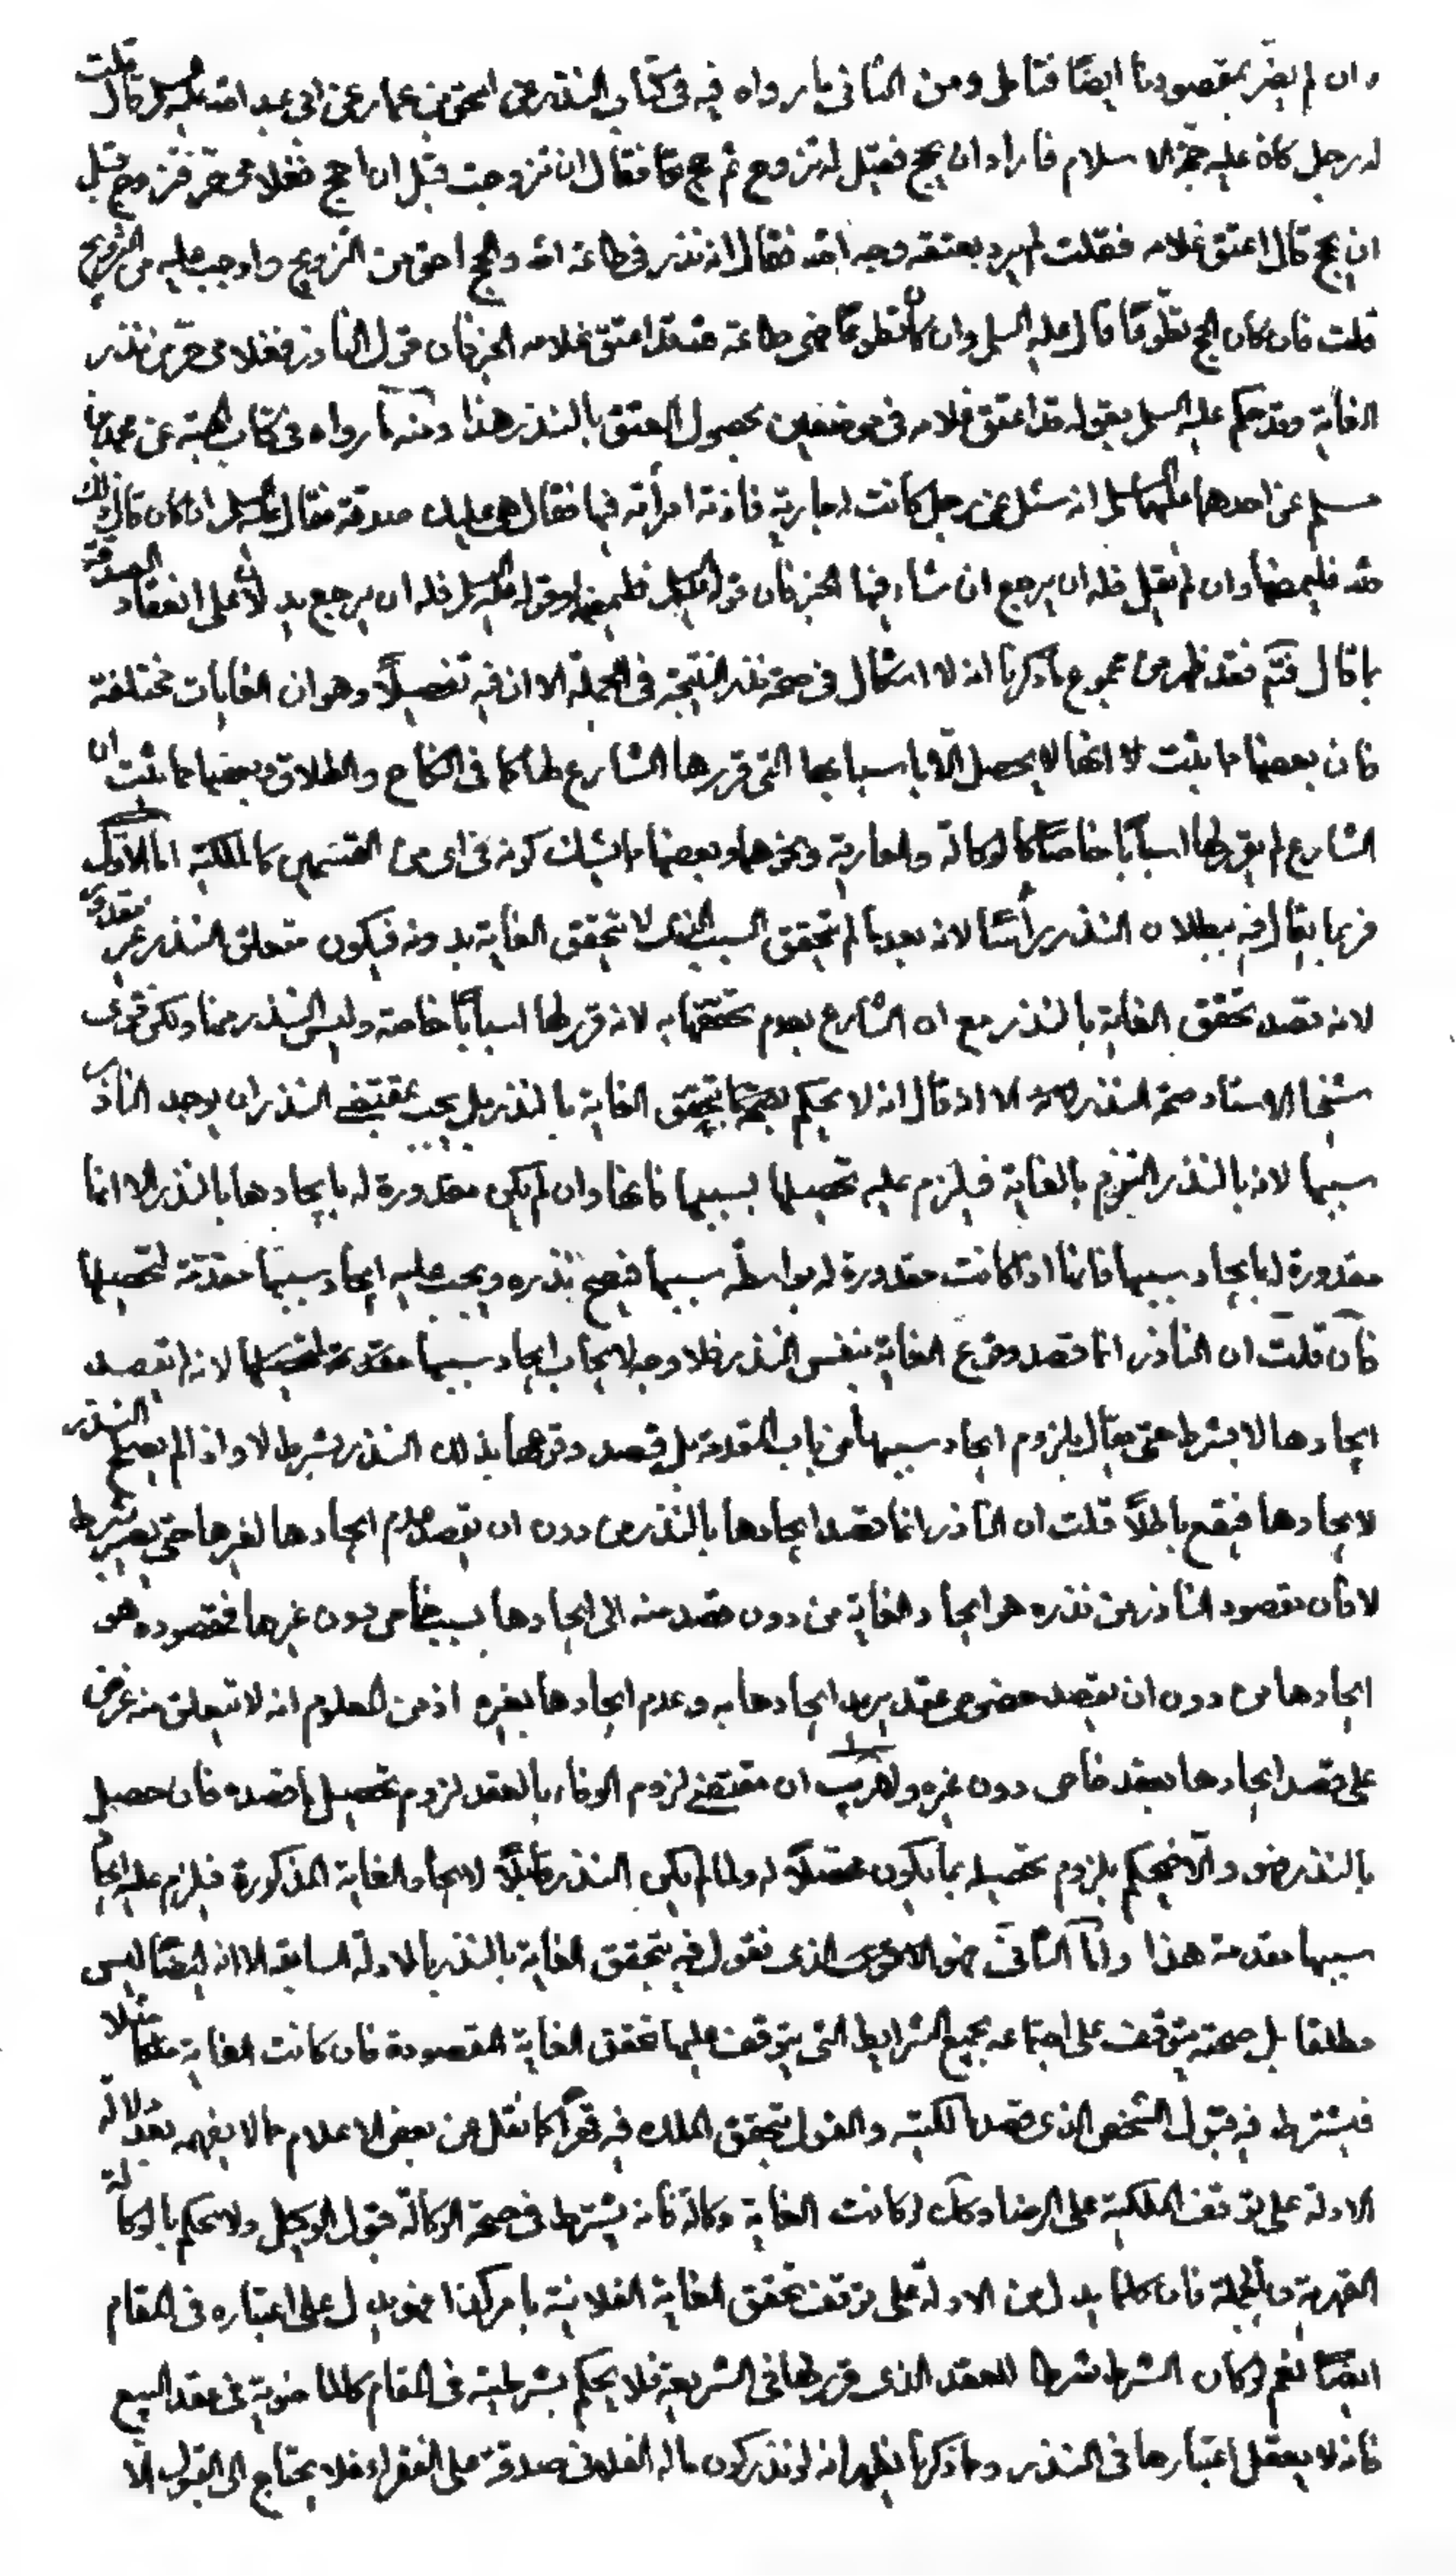 وان لم يضر بمقصودنا ايضًا فتامل ومن الثانى ما رواه فيه فى كتاب النذر عن اسحق بن عمار عن ابى عبد الله عليه السلم قال قلت
له رجل كان عليه حجة الاسلام فاراد ان يحج فقيل له تزوج ثم حج قال فقال ان تزوجت قبل ان احج فغلامى حر فتزوج قبل
ان يحج قال اعتق غلامه فقلت لم يرد بعتقه وجه الله فقال انه نذر فى طاعة الله والحج احق من التزويج واوجب عليه من التزويج
قلت فان كان الحج تطوعًا قال عليه السلم وان كان تطوعًا فهى طاعة لله قد اعتق غلامه الخبر فان قول الناذر فغلامى حر نذر
الغاية وقد حكم عليه السلم بقوله قد اعتق غلامه فى موضعين بحصول العتق بالنذر هذا ومنه ما رواه فى كتاب الهبة عن محمد بن
مسلم عن احدهما عليهما السلم انه سئل عن رجل كانت له جارية فاذته امرأته فيها فقال هى عليك صدقة فقال عليه السلم ان كان قال ذلك
لله فليمضها وان لم يقل فله ان يرجع ان شاء فيها الخبر فان قوله عليه السلم فليمضها وقوله عليه السلم فله ان يرجع يدلان على انعقاد الصدقة
بما قال فتم فقد ظهر من مجموع ما ذكرنا انه لا اشكال فى صحة نذر النتيجة فى الجملة الا ان فيه تفصيلًا وهو ان الغايات مختلفة
فان بعضها مما يثبت انها لا يحصل الّا باسبابها التى قررها الشارع لها كما فى النكاح والطلاق وبعضها مما يثبت ان
الشارع لم يقرر لها اسبابًا خاصًّا كالوكالة والعارية ونحوهما وبعضها ما يشك كونه فى اى من القسمين كالملكية اما الاول
فربما يقال فيه ببطلان النذر رأسًا لانه بعد ما لم يتحقق السبب الخاص لا يتحقق الغاية بدونه فيكون متعلق النذر غير مقدور
لانه قصد تحقق الغاية بالنذر مع ان الشارع بعدم تحققها به لانه قرر لها اسبابًا خاصة وليس النذر منها ولكن قوى
شيخنا الاستاد صحة النذر الا انه قال انه لا يحكم بتحقق الغاية بالنذر بل يجب بمقتضى النذر ان يوجد الناذر
سببها لانه بالنذر التزم بالغاية فيلزم عليه تحصيلها بسببها فانها وان لم يكن مقدورة له بايجادها بالنذر الا انها
مقدورة له بايجاد سببها فانها اذا كانت مقدورة له بواسطة سببها فيصح نذره ويجب عليه ايجاد سببها مقدمة لتحصيلها
فان قلت ان الناذر انما قصد وقوع الغاية بنفس النذر فلا وجه لايجاب ايجاد سببها مقدمة لتحصيلها لانه لم يقصد
ايجادها لا بشرط حتى يقال يلزم ايجاد سببها من باب المقدمة بل قصد وقوعها بذلك النذر بشرط لا واذا لم يصلح النذر
لايجادها فيقع باطلًا قلت ان الناذر انما قصد ايجادها بالنذر من دون ان يقصد عدم ايجادها لغيرها حتى يصير بشرط
لا فان مقصود الناذر من نذره هو ايجاد الغاية من دون قصد منه الى ايجادها بسبب خاص دون غيرها فمقصوده هو
ايجادها من دون ان يقصد خصوص عقد يريد ايجادها به وعدم ايجادها بغيره اذ من المعلوم انه لا يتعلق منه غرض
على قصد ايجادها بعقد خاص دون غيره ولا ريب ان مقتضى لزوم الوفاء بالعقد لزوم تحصيل ما قصده فان حصل
بالنذر فهو والّا فيحكم بلزوم تحصيله بما يكون محصّلًا له ولما لم يكن النذر قابلًا لايجاد الغاية المذكورة فيلزم عليه ايجاد
سببها مقدمة هذا وامّا الثانى فهو الذى نقول فيه بتحقق الغاية بالنذر بالادلة السابقة الا انه ايضًا ليس
مطلقا بل صحته يتوقف على اجتماعه بجميع الشرايط التى يتوقف عليها تحقق الغاية المقصودة فان كانت الغاية ملكًا مثلا
فيشترط فيه قبول الشخص الذى قصد مالكيته والقول بتحقق الملك فيه قهرًا كما نقل عن بعض الاعلام مما لا يفهم بعد دلالة
الادلة على توقف الملكية على الرضا وكذا لو كانت الغاية وكالة فانه يشترط فى صحة الوكالة قبول الوكيل ولا يحكم بالوكالة
القهرية وبالجملة فان كلما يدل من الادلة على توقف تحقق الغاية الفلانية بامر كذا فهو يدل على اعتباره فى المقام
ايضًا نعم لو كان الشرط شرطا للعقد الذى قرر لها فى الشريعة فلا يحكم بشرطيته فى المقام كالماضوية فى عقد البيع
فانه لا يعقل اعتبارها فى النذر ومما ذكرنا يظهر انه لو نذر كون ماله الفلانى صدقة على الفقراء فلا يحتاج الى القبول الّا